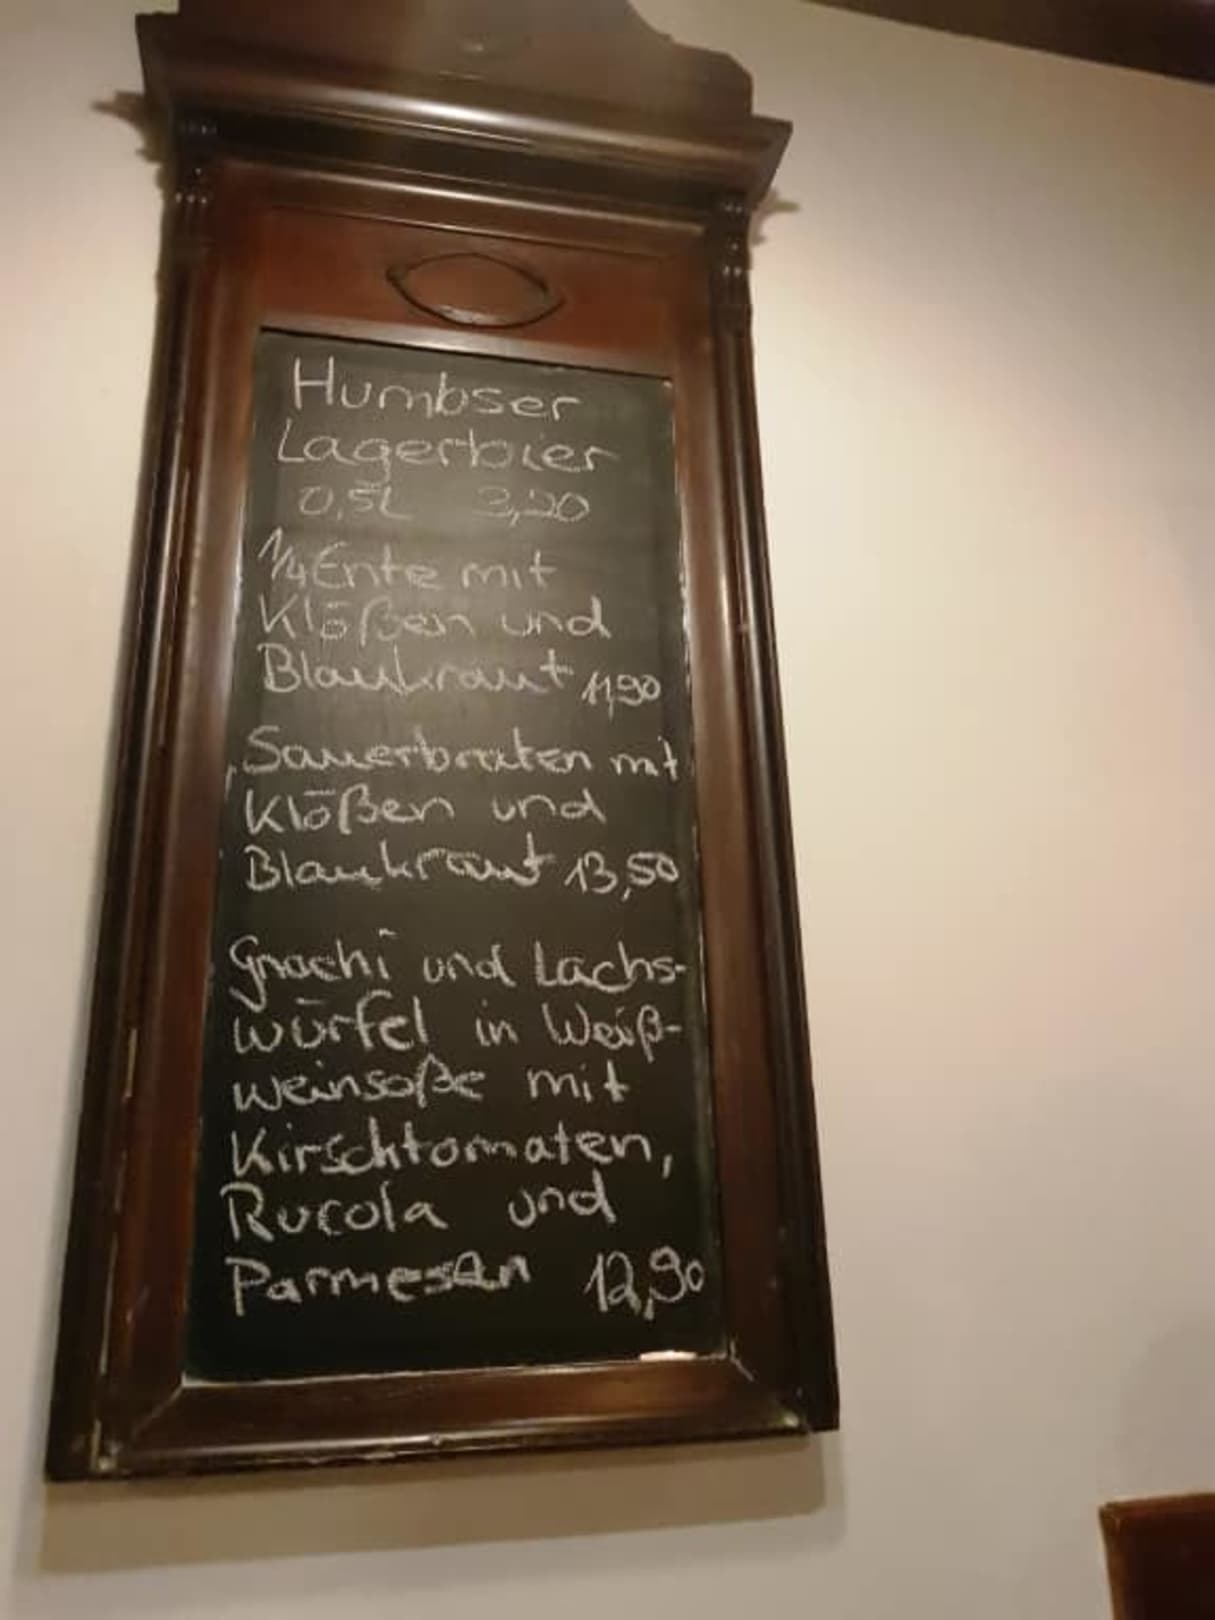 Humbser
Lagerbier
0,5L 3,20
1/4 Ente mit
Klößen und
Blaukraut 11,90
Sauerbraten mit
Klößen und
Blaukraut 13,50
Gnochi und Lachs-
würfel in Weiß-
weinsoße mit
Kirschtomaten,
Rucola und
Parmesan 12,90